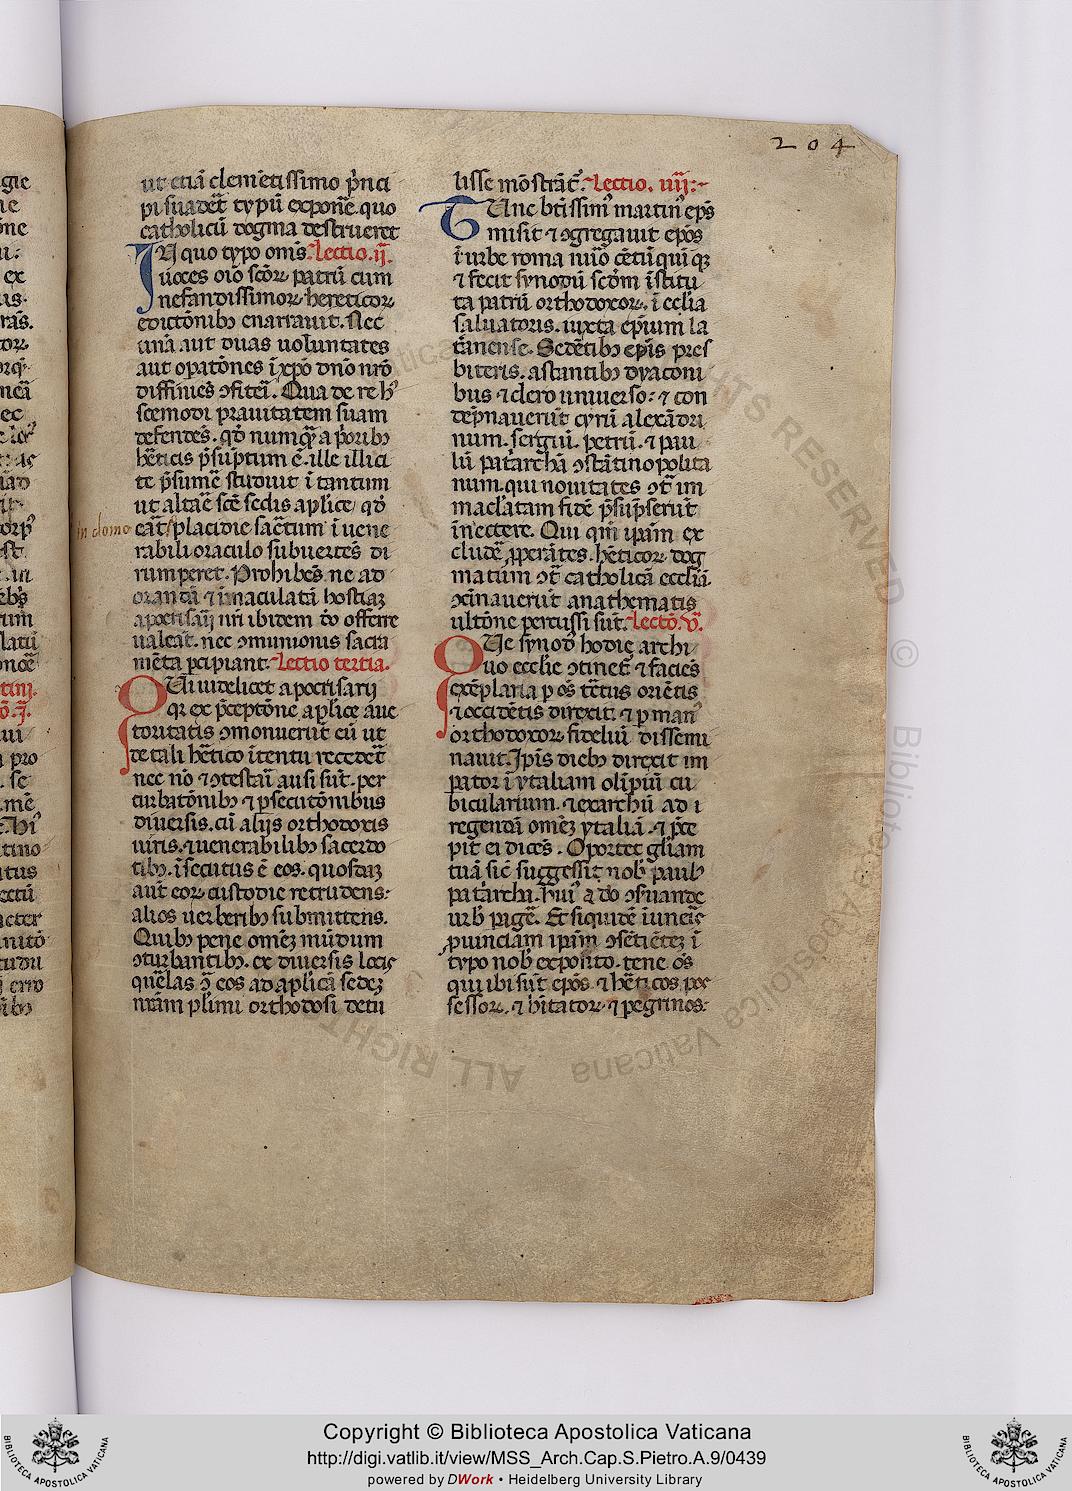 204
ut etiā clemētissimo p̄nci
pi suadet̄ typū expone᷒. quo
catholicū dogma destrueret
IN quo typo om̄s. Lectio. ij.
uoces oīo sc̄oꝝ patrū cum
nefandissimoꝝ hereticoꝝ
edictōnibꝫ enarrauit. Nec
unā aut duas uoluntates
aut oꝑatōnes ī xp̄o dn̄o nr̄o
diffiniēs ꝯfitēi. Qua de re hꝰ
scemodi prauitatem suam
defendēs. qḋ numq̄ꝫ a p̄oribꝫ
hēticis p̄sūptum ē. ille illici
te p̄sume᷒ studuit ī tantum
ut altare᷒ sc̄e sedis aplīce qḋ
in domo
erāt placidie sacͣtum ī uene
rabili oraculo subuertēs di
rumperet. Prohibēs ne ad
orandā ⁊ īmaculatā hostiaꝫ
apocrisarij nr̄i ibidem d̄o offerre
ualeāt. nec ꝯmunionis sacra
mēta ꝑcipiant. Lectio tertia.
QUi uidelicet apocrisarij
qꝛ ex p̄ceptōne aplīce auc
toritatis ꝯmonuerūt eū ut
de tali hētico ītentu recedet̄
nec nō ⁊ ꝯtestari ausi sūt. per
turbatōnibꝫ ⁊ ꝑsecutōnibus
diuersis. cū alijs orthodoxis
uiris. ⁊ uenerabilibꝫ sacerdo
tibꝫ. īsecutus ē eos. quosdaꝫ
aut̄ eoꝝ custodie retrudens.
alios uerberibꝫ submittens.
Quibꝫ pene omēꝫ mūdum
ꝯturbantibꝫ. ex diuersis locis
querelas ꝯ̄ eos ad aplīcā sedeꝫ
nr̄am plīmi orthodoxi detu
lisse mōstrāt᷒. Lectio. iiij.
TUnc bt̄issimꝰ martinꝰ ep̄s
misit ⁊ ꝯgregauit ep̄os
ī urbe roma nūīo cētūqūiqꝫ
⁊ fecit synodū scd̄m īstitu
ta patrū orthodoxoꝝ. ī ecl̄ia
saluatoris. iuxta ep̄ium la
t̄anense. Sedētibꝫ ep̄is pres
biteris. astantibꝫ dyaconi
bus ⁊ clero uniuerso. ⁊ con
dep̄nauerūt cyrū alexādri
num. sergiū. petrū. ⁊ pau
lū pat̄archā ꝯstātinopolita
num. qui nouitates ꝯt̄ im
maclatam fidē p̄sūpserūt
īnectere. Qui qm̄ ip̄am ex
clude᷒ ꝓperātes. hēticoꝝ dog
matum ꝯt̄ catholicā eccl̄iā
ꝯcīnauerūt anathematis
ultōne percussi sūt. Lectō. v.
QUe synodꝰ hodie archi
uo ecclie ꝯtinet̄ ⁊ faciēs
exēplaria ꝑ oēs tctus oriētis
⁊ occidētis direxit. ⁊ ꝑ manꝰ
orthodoxoꝝ fideliū dissemi
nauit. Ip̄is diebꝫ direxit im
pator ī ytaliam olīpiū cu
bicularium. ⁊ exarchū ad ꝛ
regendā omēꝫ ytaliā. ⁊ p̄ce
pit ei dicēs. Oportet gl̄iam
tuā sic̄ suggessit nob̄ paulꝰ
pat̄archa. hꝰi ᷒ a dō ꝯseruande
urb̄ page᷒. Et siquidē īueneris
ꝓuinciam ip̄am ꝯsētiētēꝫ ī
typo nob̄ exposito. tene oēs
qui ibi sūt ep̄os ⁊ hēticos pos
sessoꝝ. ⁊ hītatoꝝ ⁊ ꝑegrinos.
ALL RIGHTS RESERVED © Biblioteca Apostolica Vaticana
Copyright © Biblioteca Apostolica Vaticana
http://digi.vatlib.it/view/MSS_Arch.Cap.S.Pietro.A.9/0439
powered by DWork • Heidelberg University Library
BIBLIOTECA APOSTOLICA VATICANA
BIBLIOTECA APOSTOLICA VATICANA